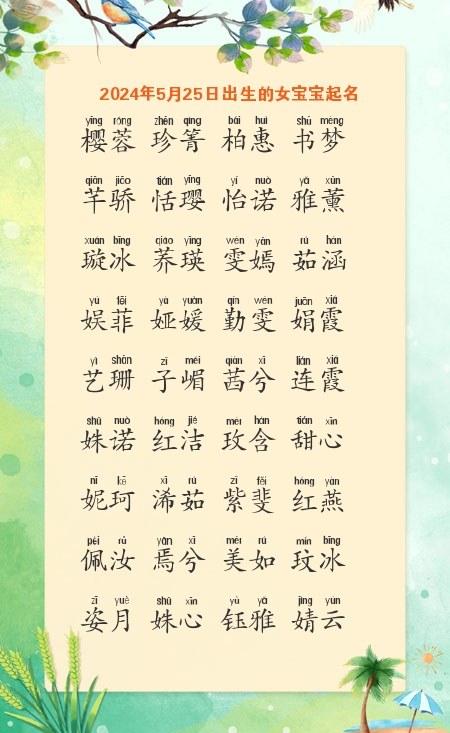 2024年5月25日出生的女宝宝起名
yīng róng zhēn qìng bǎi huì shū mèng
樱蓉 珍箐 柏惠 书梦
qiān jiāo tián yīng yí nuò yǎ xūn
芊骄 恬璎 怡诺 雅薰
xuán bīng qiáo yīng wén yān rú hán
璇冰 荞瑛 雯嫣 茹涵
yú fēi yà yuán qín wén juān xiá
娱菲 娅媛 勤雯 娟霞
yì shān zǐ méi qiàn xī lián xiá
艺珊 子嵋 茜兮 连霞
shū nuò hóng jié méi hán tián xīn
姝诺 红洁 玫含 甜心
nī kē xī rú zǐ fěi hóng yàn
妮珂 浠茹 紫斐 红燕
pèi rǔ yān xī měi rú mín bīng
佩汝 焉兮 美如 玟冰
zī yuè shū xīn yù yǎ jìng yún
姿月 姝心 钰雅 婧云